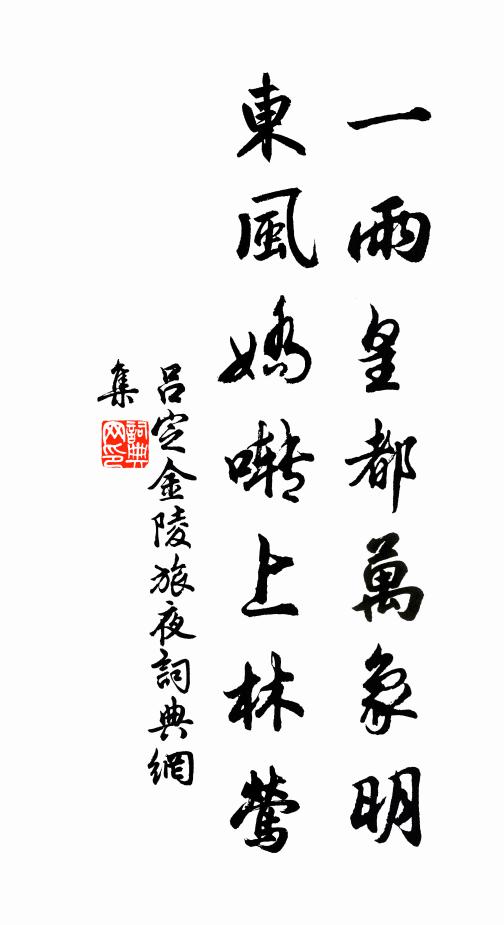 一雨皇都萬象明
東風嬌囀上林鶯
呂定金陵旅夜詞典網
集
詞典
网印